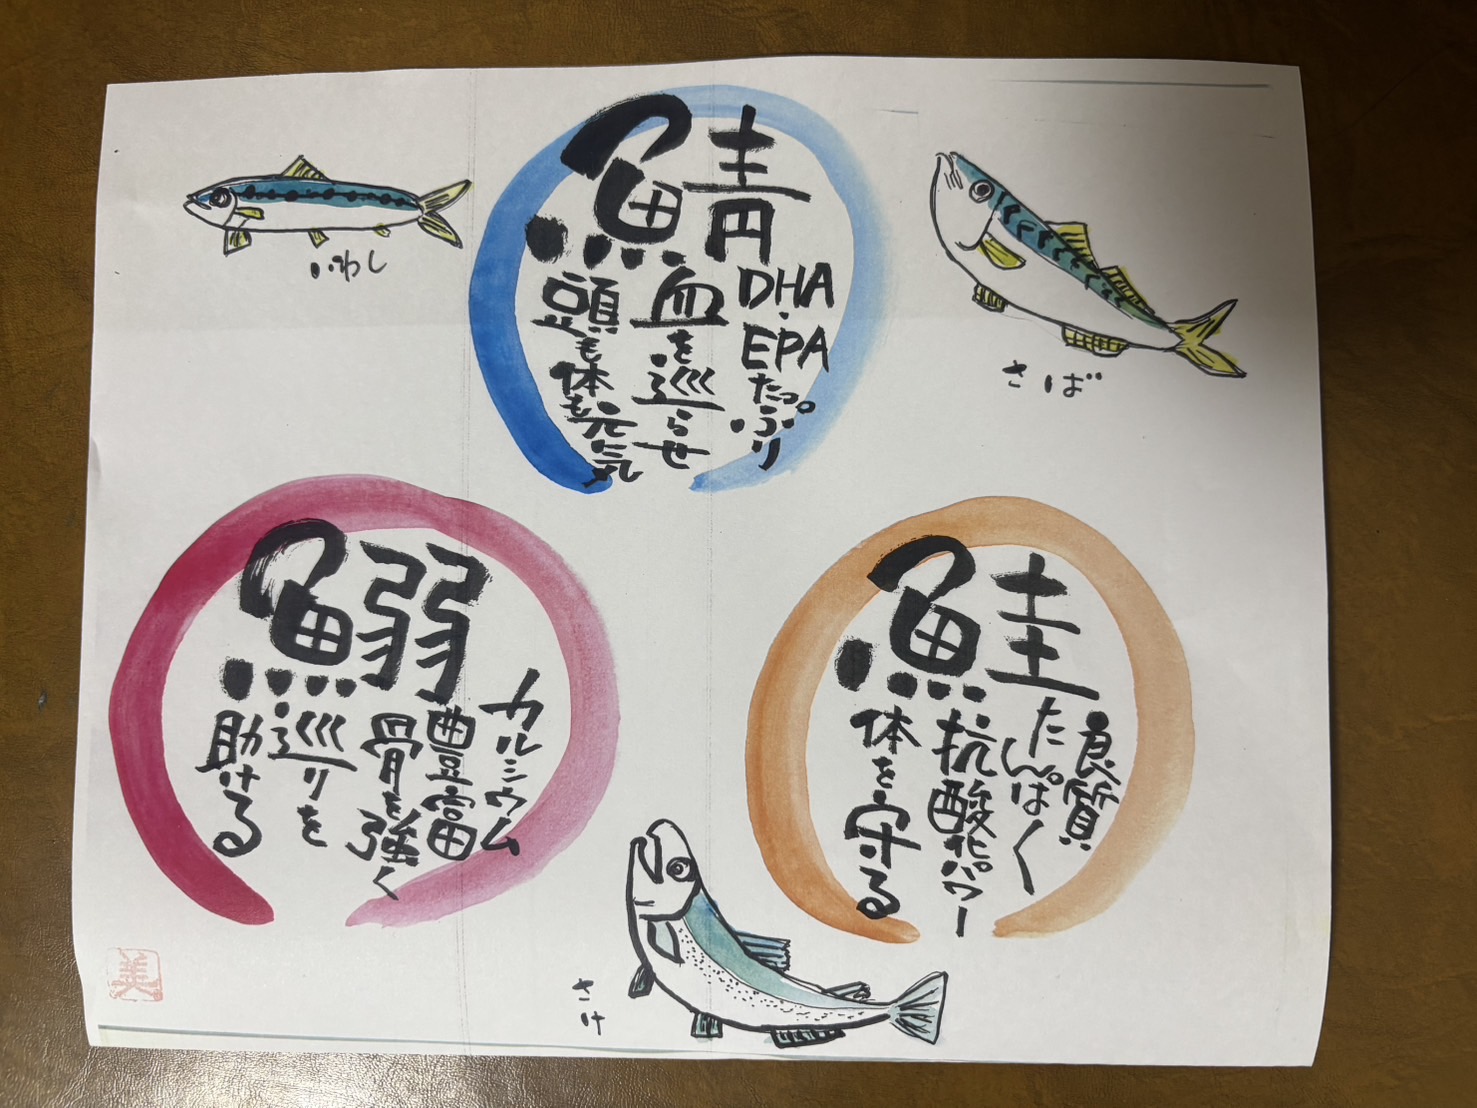 いわし
鯖
DHA・EPAたっぷり
血を巡らせ
頭も体も元気
さば
鰯
カルシウム
豊富
骨を強く
巡りを
助ける
鮭
良質
たんぱく
抗酸化パワー
体を守る
さけ
美